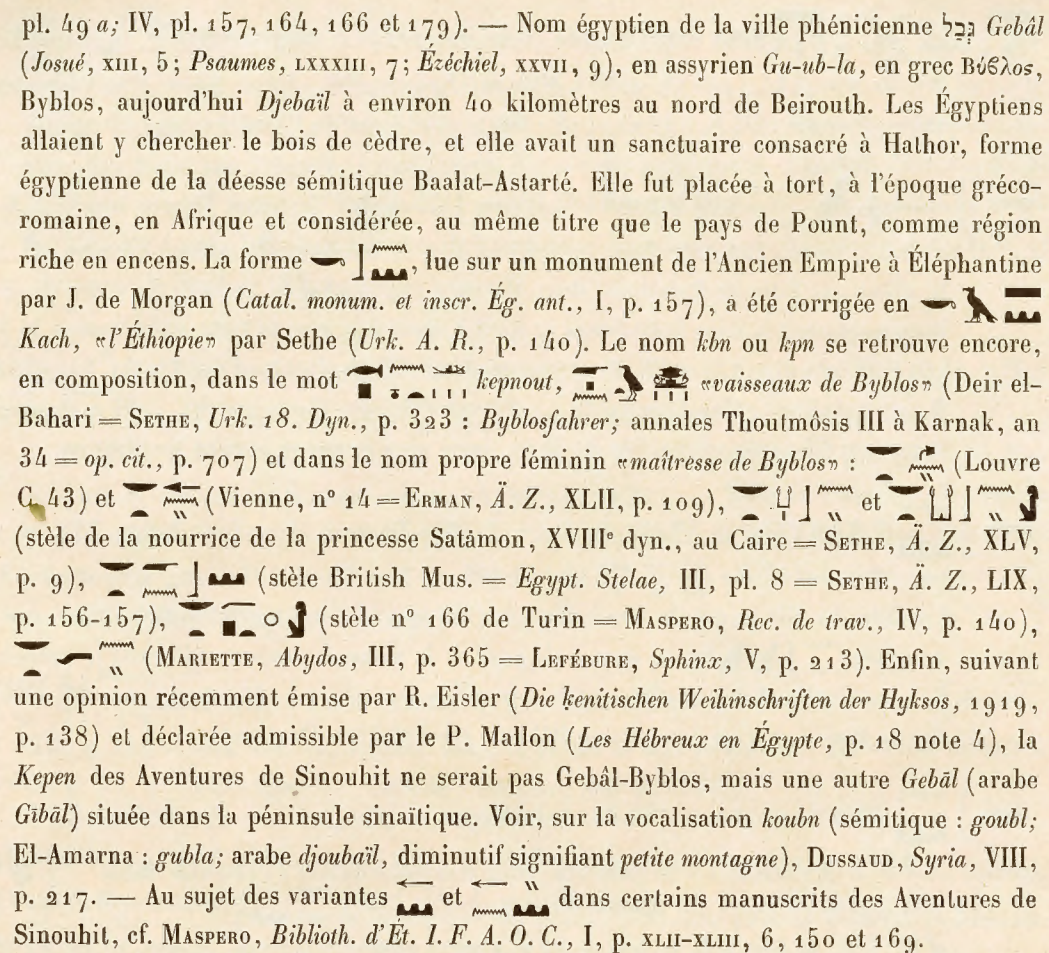 pl. 49 a; IV, pl. 157, 164, 166 et 179). — Nom égyptien de la ville phénicienne גְּבַל Gebâl
(Josué, XIII, 5; Psaumes, LXXXIII, 7; Ézéchiel, XXVII, 9), en assyrien Gu-ub-la, en grec Βύβλος,
Byblos, aujourd'hui Djebaïl à environ 40 kilomètres au nord de Beirouth. Les Égyptiens
allaient y chercher le bois de cèdre, et elle avait un sanctuaire consacré à Hathor, forme
égyptienne de la déesse sémitique Baalat-Astarté. Elle fut placée à tort, à l'époque gréco-
romaine, en Afrique et considérée, au même titre que le pays de Pount, comme région
riche en encens. La forme , lue sur un monument de l'Ancien Empire à Éléphantine
par J. de Morgan (Catal. monum. et inscr. Ég. ant., I, p. 157), a été corrigée en
Kach, «l'Éthiopie» par Sethe (Urk. A. R., p. 140). Le nom kbn ou kpn se retrouve encore,
en composition, dans le mot kepnout, «vaisseaux de Byblos» (Deir el-
Bahari = SETHE, Urk. 18. Dyn., p. 323 : Byblosfahrer; annales Thoutmôsis III à Karnak, an
34 = op. cit., p. 707) et dans le nom propre féminin «maîtresse de Byblos» : (Louvre
C. 43) et (Vienne, n° 14 = ERMAN, Ä. Z., XLII, p. 109), et
(stèle de la nourrice de la princesse Satâmon, XVIIIe dyn., au Caire = SETHE, Ä. Z., XLV,
p. 9), (stèle British Mus. = Egypt. Stelae, III, pl. 8 = SETHE, Ä. Z., LIX,
p. 156-157), (stèle n° 166 de Turin = MASPERO, Rec. de trav., IV, p. 140),
(MARIETTE, Abydos, III, p. 365 = LEFÉBURE, Sphinx, V, p. 213). Enfin, suivant
une opinion récemment émise par R. Eisler (Die ḳenitischen Weihinschriften der Hyksos, 1919,
p. 138) et déclarée admissible par le P. Mallon (Les Hébreux en Égypte, p. 18 note 4), la
Kepen des Aventures de Sinouhit ne serait pas Gebâl-Byblos, mais une autre Gebāl (arabe
Gībāl) située dans la péninsule sinaïtique. Voir, sur la vocalisation koubn (sémitique : goubl;
El-Amarna : gubla; arabe djoubaïl, diminutif signifiant petite montagne), DUSSAUD, Syria, VIII,
p. 217. — Au sujet des variantes et dans certains manuscrits des Aventures de
Sinouhit, cf. MASPERO, Biblioth. d'Ét. I. F. A. O. C., I, p. XLII-XLIII, 6, 150 et 169.